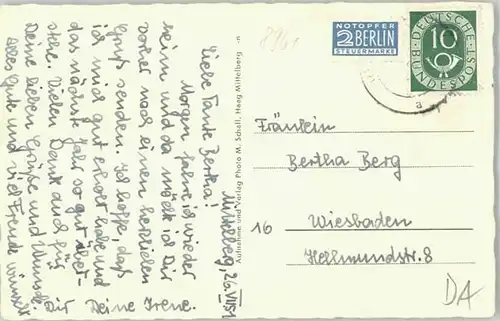 896.
NOTOPFER
2 BERLIN
STEUERMARKE
DEUTSCHE
BUNDESPOST
10
a
Mittelberg, 26.VIII.51
Liebe Tante Bertha!
Morgen fahre ich wieder
heim und da möchte ich Dir
vorher noch einen herzlichen
Gruß senden. Ich hoffe, daß
ich mich gut erholt habe und
das nächste Jahr so gut über-
stehe. Vielen Dank auch für
Deine lieben Grüße und Wünsche.
Alles Gute und viel Freude wünscht
Dir Deine Irene.
Aufnahme und Verlag Photo M. Scholl, Haag Mittelberg
Fräulein
Bertha Berg
16 Wiesbaden
Hellmundstr. 8
DA